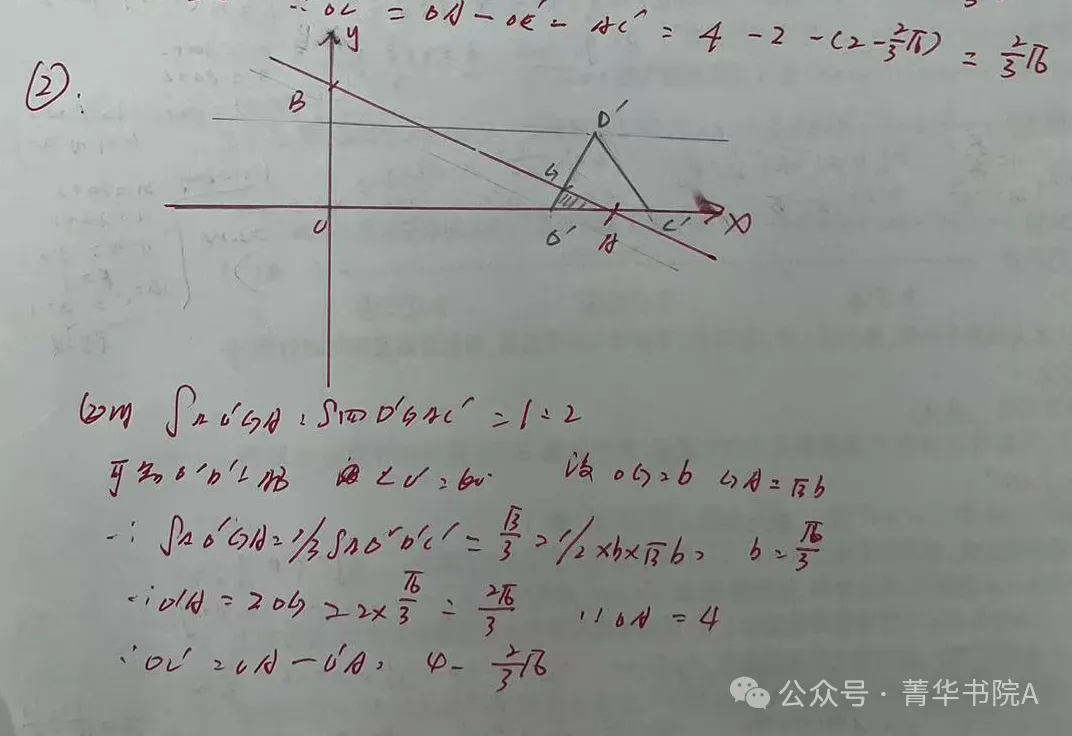 ∴ OC' = OA - OE' - AC' = 4 - 2 - (2 - \frac{2}{3}√6) = \frac{2}{3}√6
②.
y
B
D'
G
O
O'
A
C'
X
S△O'GA : S四D'GAC' = 1 : 2
可知O'D'⊥AB ∠O' = 60° 设OG = b GA = √3b
∴ S△O'GA = 1/3 S△O'D'C' = \frac{√3}{3} = 1/2 × b × √3b, b = \frac{√6}{3}
∴ O'A = 2OG = 2 × \frac{√6}{3} = \frac{2√6}{3} ∵ OA = 4
∴ OO' = OA - O'A = 4 - \frac{2}{3}√6
公众号 · 菁华书院A